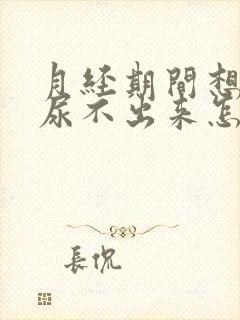 月经期間想
尿不出来怎
長侃